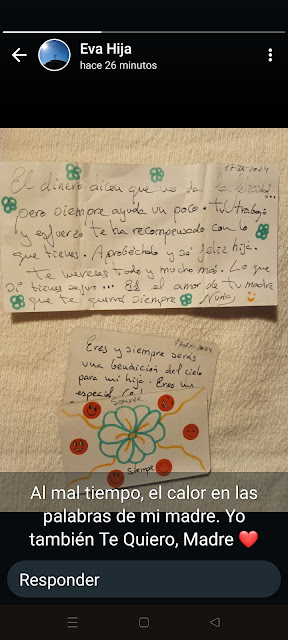 Eva Hija
hace 26 minutos
17-IX-2024
El dinero dicen que no da la felicidad...
pero siempre ayuda un poco. Tu trabajo
y esfuerzo te ha recompensado con lo
que tienes. Aprobéchalo y sé feliz hija.
Te mereces todo y mucho más. Lo que
Si tienes seguro... Es el amor de tu madre
que te querrá siempre
Eres y siempre serás
una bendición del cielo
para mi hija. Eres un
especial
Siempre
Siempre
Al mal tiempo, el calor en las
palabras de mi madre. Yo
también Te Quiero, Madre ❤️
Responder